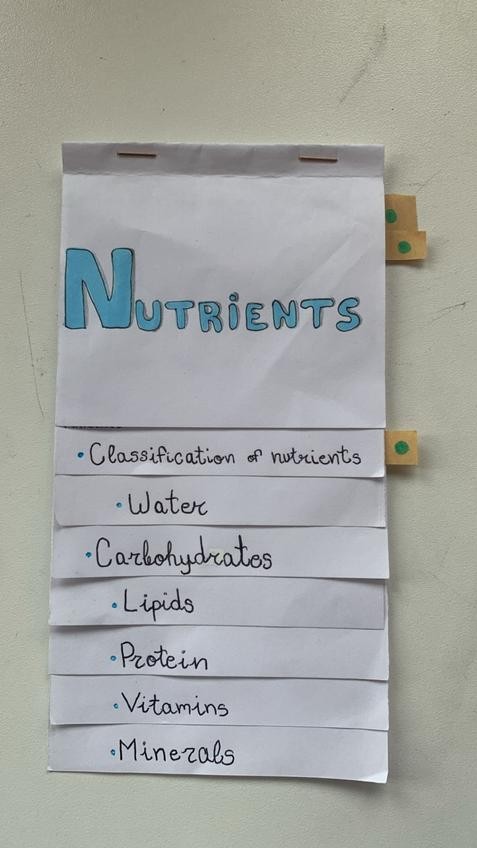 NUTRiENTS
• Classification of nutrients
• Water
• Carbohydrates
• Lipids
• Protein
• Vitamins
• Minerals